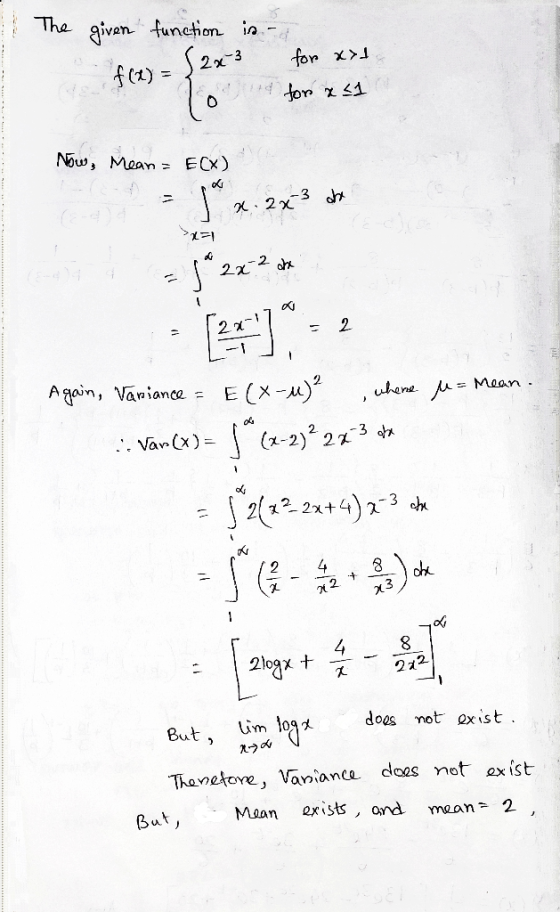 The given function is -
f(x) = { 2x^-3 for x>1
0 for x ≤1
Now, Mean = E(X)
= ∫_{x=1}^∞ x · 2x^-3 dx
= ∫_1^∞ 2x^-2 dx
= [2x^-1 / -1]_1^∞ = 2
Again, Variance = E(X-μ)^2 , where μ = Mean.
∴ Var(X) = ∫_1^∞ (x-2)^2 2x^-3 dx
= ∫_1^∞ 2(x^2 - 2x+4) x^-3 dx
= ∫_1^∞ (2/x - 4/x^2 + 8/x^3) dx
= [2logx + 4/x - 8/2x^2]_1^∞
But, lim_{x→∞} logx does not exist.
Therefore, Variance does not exist
But, Mean exists, and mean = 2,